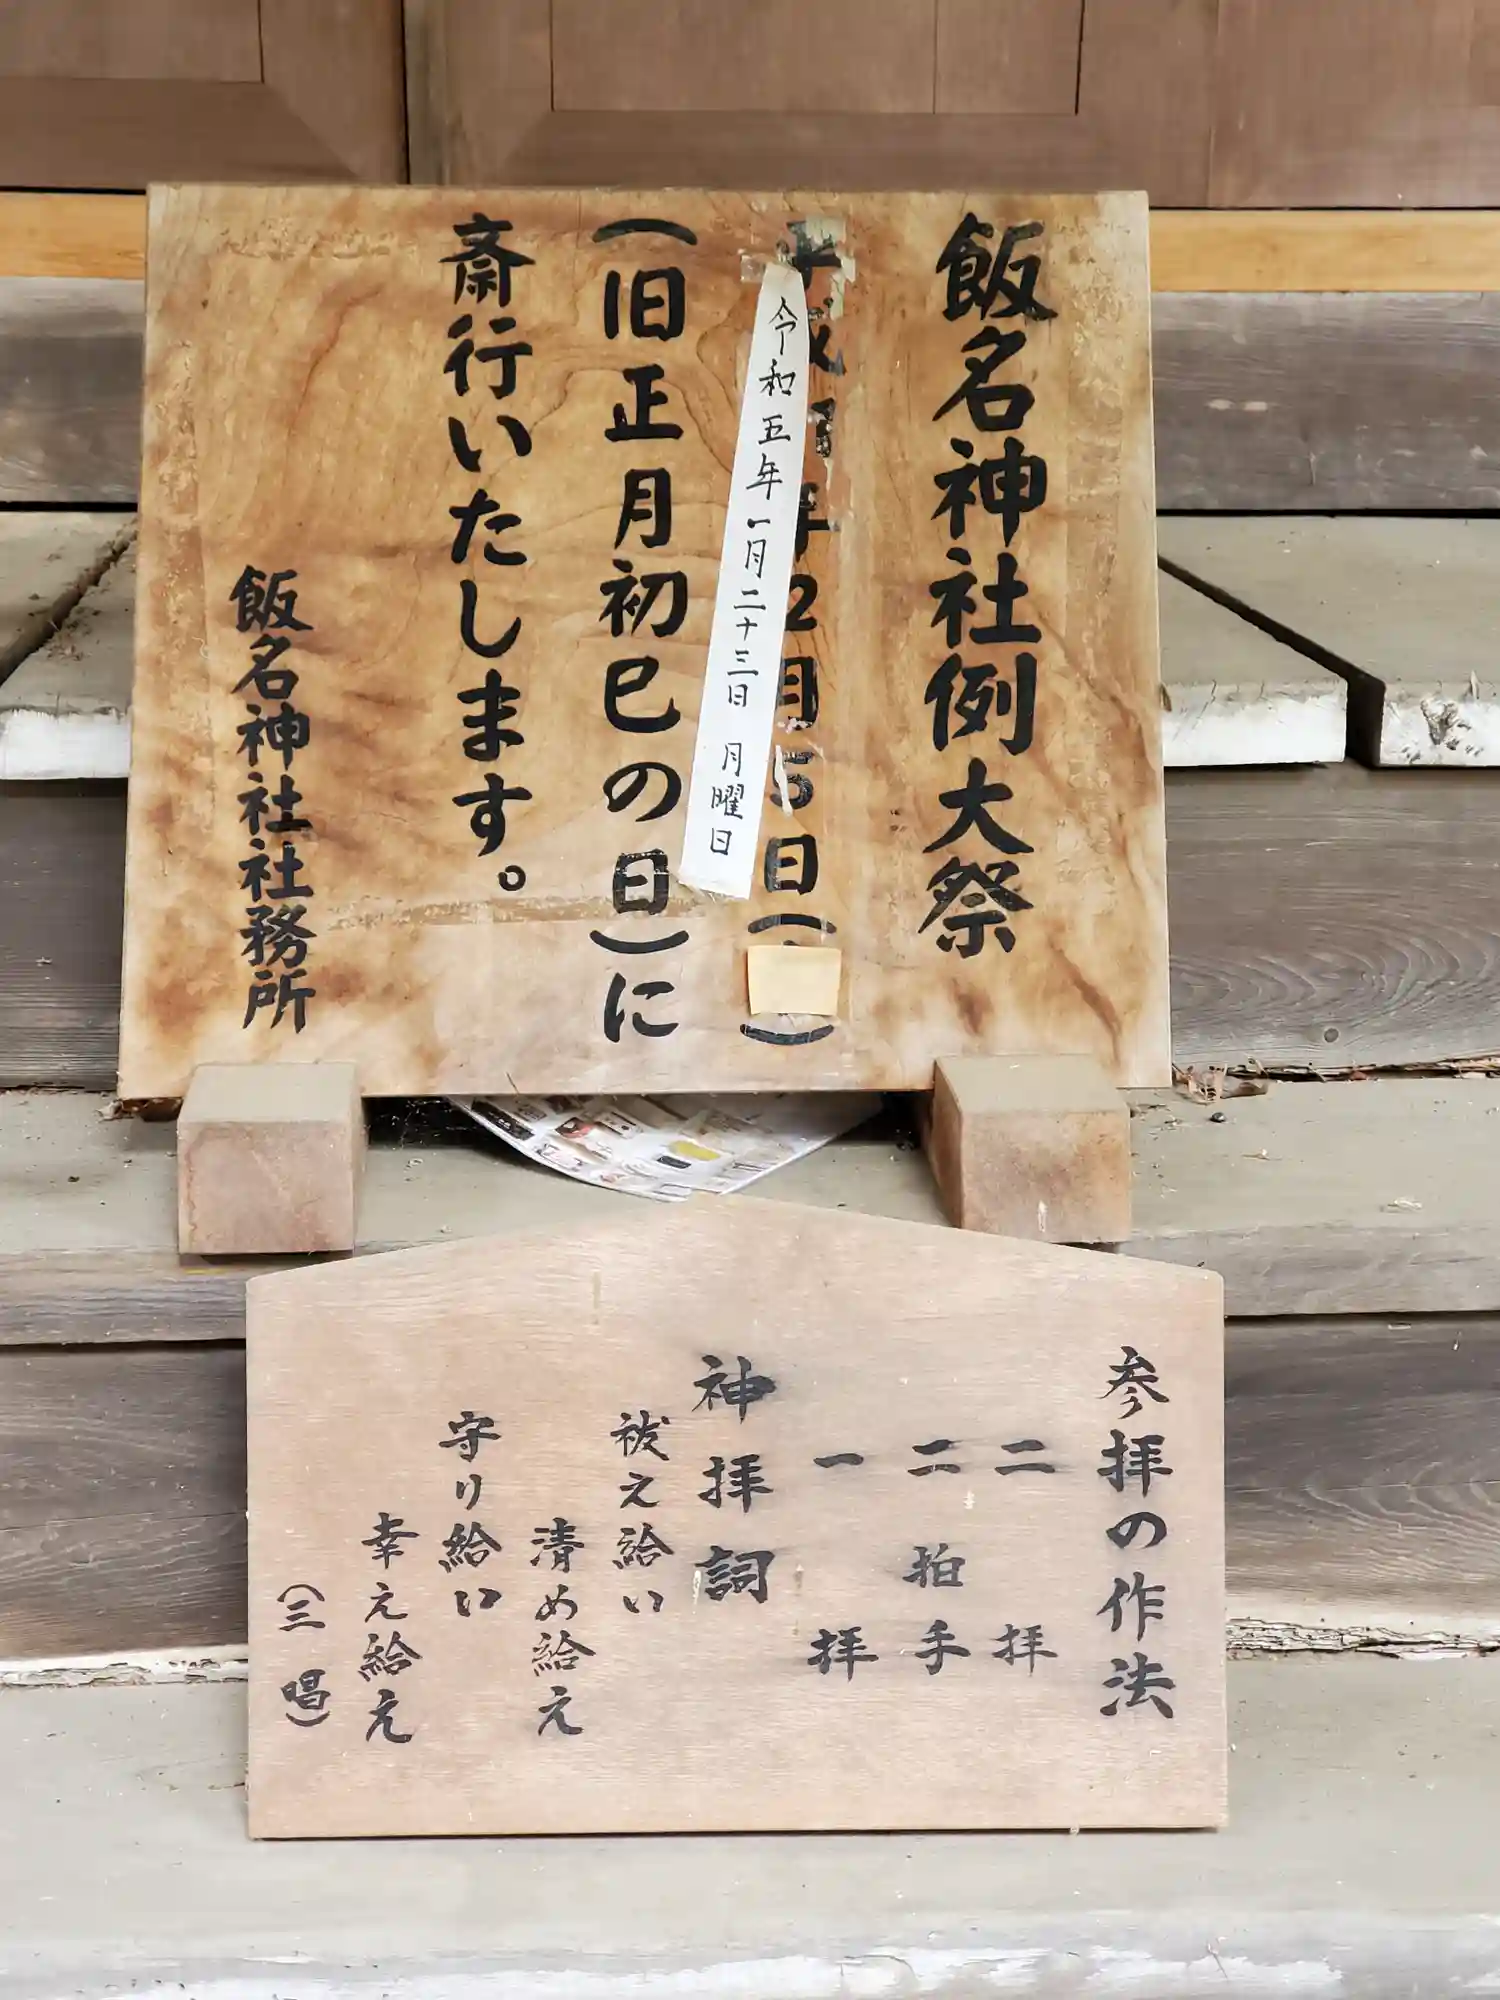 飯名神社例大祭
平成 年2月5日( )
令和五年一月二十三日 月曜日
(旧正月初巳の日)に
斎行いたします。
飯名神社社務所
参拝の作法
二 拝
二 拍 手
一 拝
神拝詞
祓え給い
清め給え
守り給い
幸え給え
(三 唱)